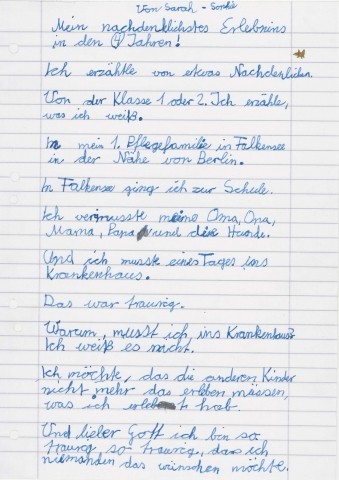 Von Sarah - Sophie
Mein nachdenklichstes Erlebnins
in den 4 Jahren!
Ich erzählte von etwas Nachdenklichen.
Von der Klasse 1 oder 2. Ich erzähle,
was ich weiß.
In mein 1. Pflegefamilie in Falkensee
in der Nähe von Berlin.
In Falkensee ging ich zur Schule.
Ich vermusste meine Oma, Opa,
Mama, Papa und die Hunde.
Und ich musste eines Tages ins
Krankenhaus.
Das war traurig.
Warum, musst ich ins Krankenhaus?
Ich weiß es nicht.
Ich möchte, das die anderen Kinder
nicht mehr das erleben müssen,
was ich erlebt hab.
Und lieber Gott ich bin so
traurig so traurig, das ich
niemanden das wünschen möchte.